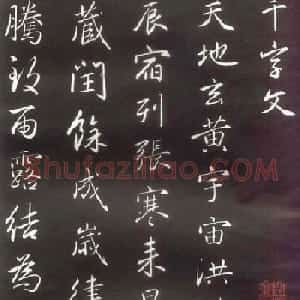 千字文
天地玄黃宇宙洪
辰宿列張寒来
藏閏餘成歲律
騰致雨露結為
shufaziliao.com